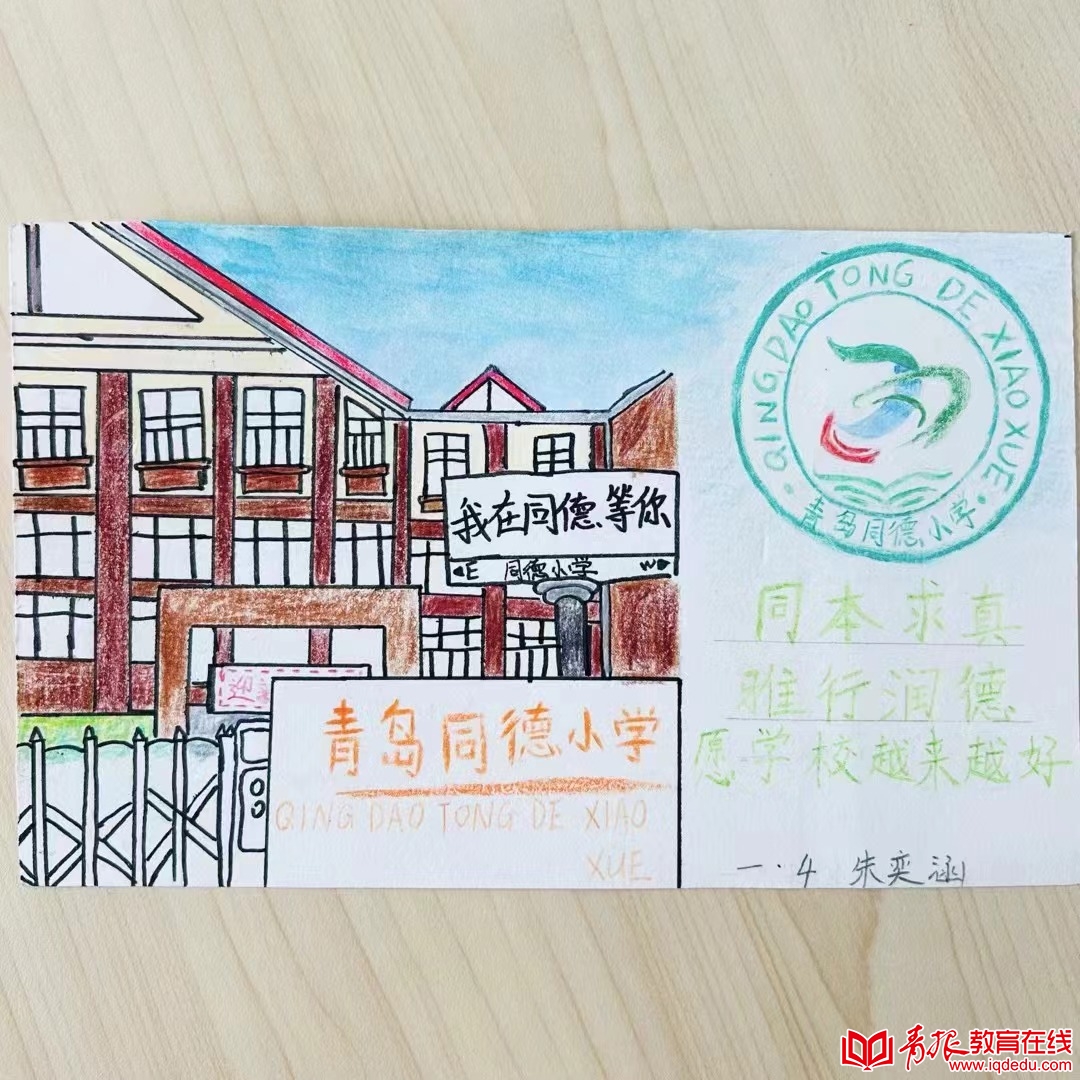 QING DAO TONG DE XIAO XUE
青岛同德小学
我在同德等你
E 同德小学 W
同本求真
雅行润德
愿学校越来越好
迎
青岛同德小学
QING DAO TONG DE XIAO
XUE
一·4 朱奕涵
青报教育在线
www.iqdedu.com